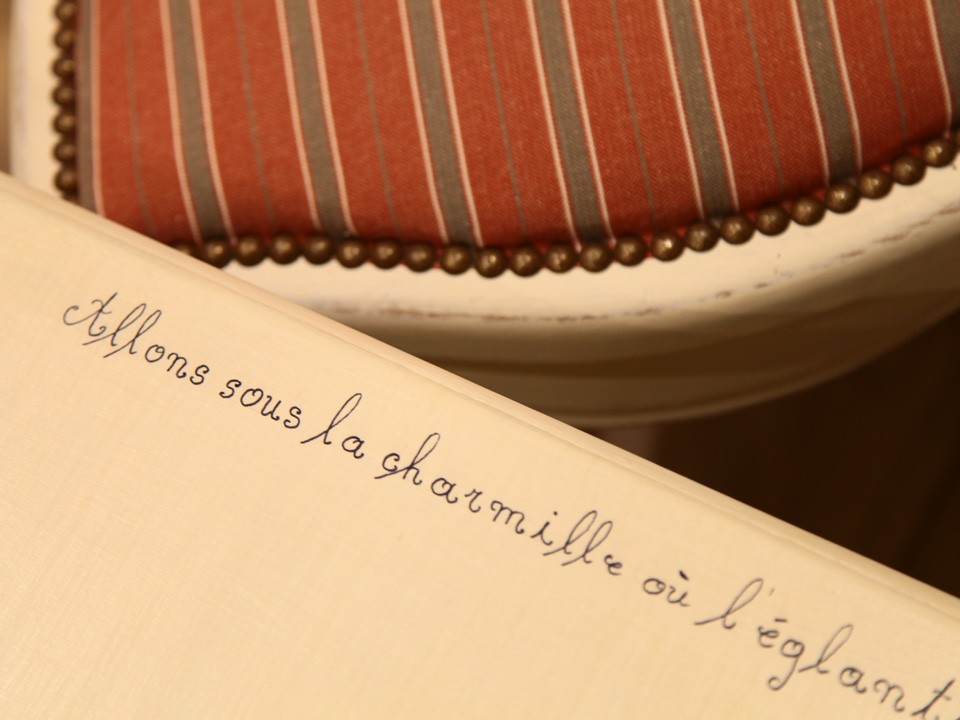 Allons sous la charmille où l'églant